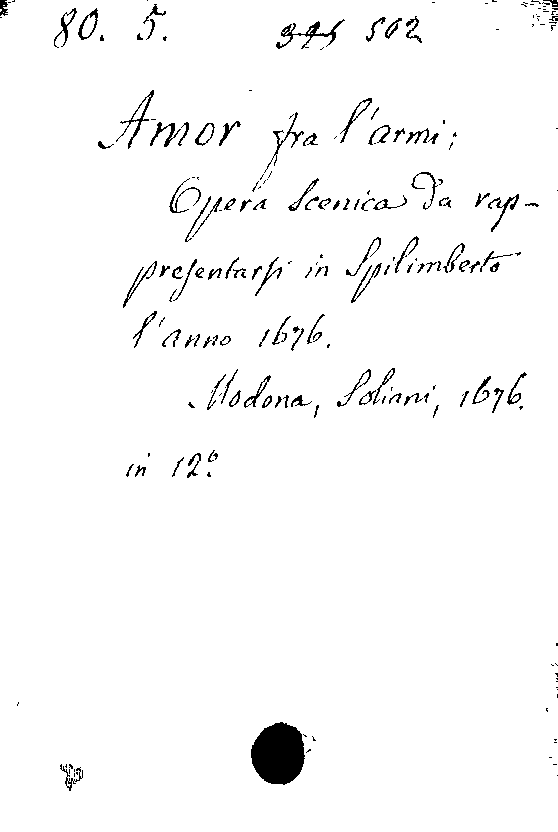 80. 5. 395 502
Amor fra l'armi;
Opera scenica da rap-
presentarsi in Spilimberto
l'anno 1676.
Modona, Soliani, 1676.
in 12º.